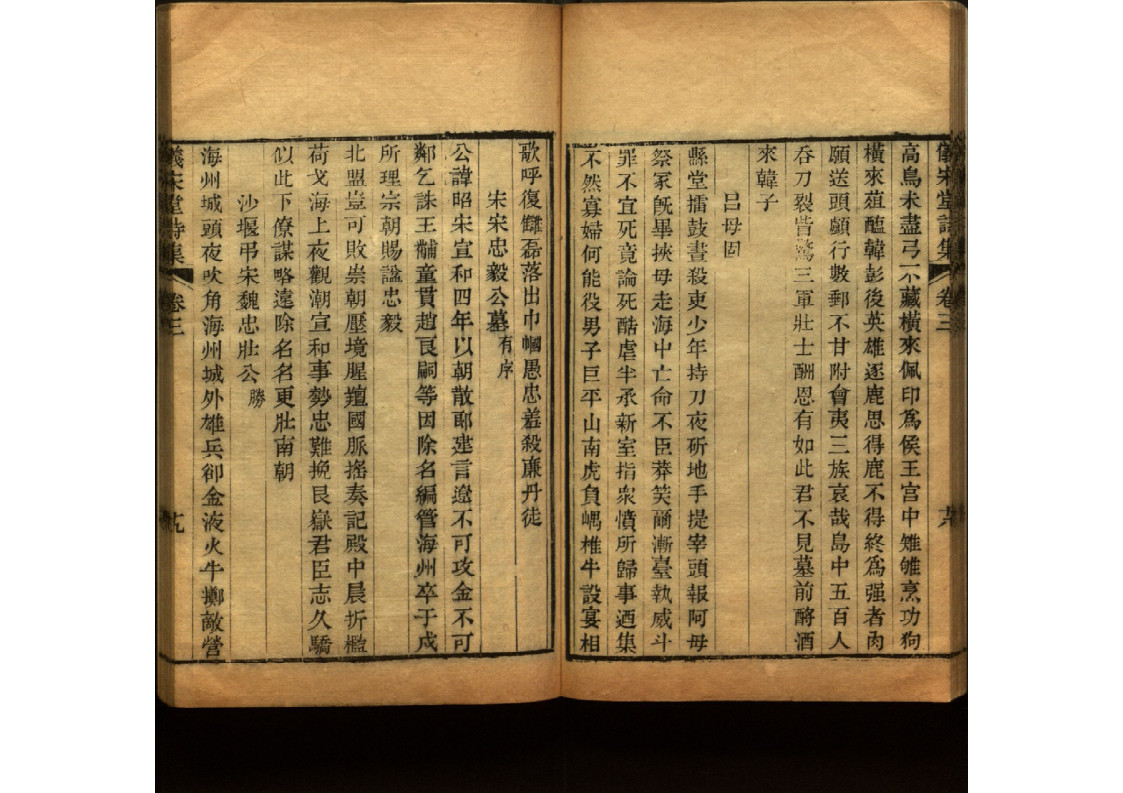 儀宋堂詩集 卷三 十八
高鳥未盡弓不藏橫來佩印爲侯王宮中雉雊烹功狗
橫來葅醢韓彭後英雄逐鹿思得鹿不得終爲强者肉
願送頭顱行數郵不甘附會夷三族哀哉島中五百人
吞刀裂眥驚三軍壯士酬恩有如此君不見墓前酹酒
來韓子
呂母固
縣堂擂鼓晝殺吏少年持刀夜斫地手提宰頭報阿母
祭冢旣畢挾母走海中亡命不臣莽笑爾漸臺執威斗
罪不宜死竟論死酷虐半承新室指衆憤所歸事迺集
不然寡婦何能役男子巨平山南虎負嵎椎牛設宴相
歌呼復讎磊落出巾幗愚忠羞殺廉丹徒
宋宋忠毅公墓有序
公諱昭宋宣和四年以朝散郞建言遼不可攻金不可
鄰乞誅王黼童貫趙良嗣等因除名編管海州卒于戍
所理宗朝賜諡忠毅
北盟豈可敗崇朝壓境腥羶國脈搖奏記殿中晨折檻
荷戈海上夜觀潮宣和事勢忠難挽艮嶽君臣志久驕
似此下僚謀略遠除名名更壯南朝
沙堰弔宋魏忠壯公勝
海州城頭夜吹角海州城外雄兵卻金液火牛擲敵營
儀宋堂詩集 卷三 十九